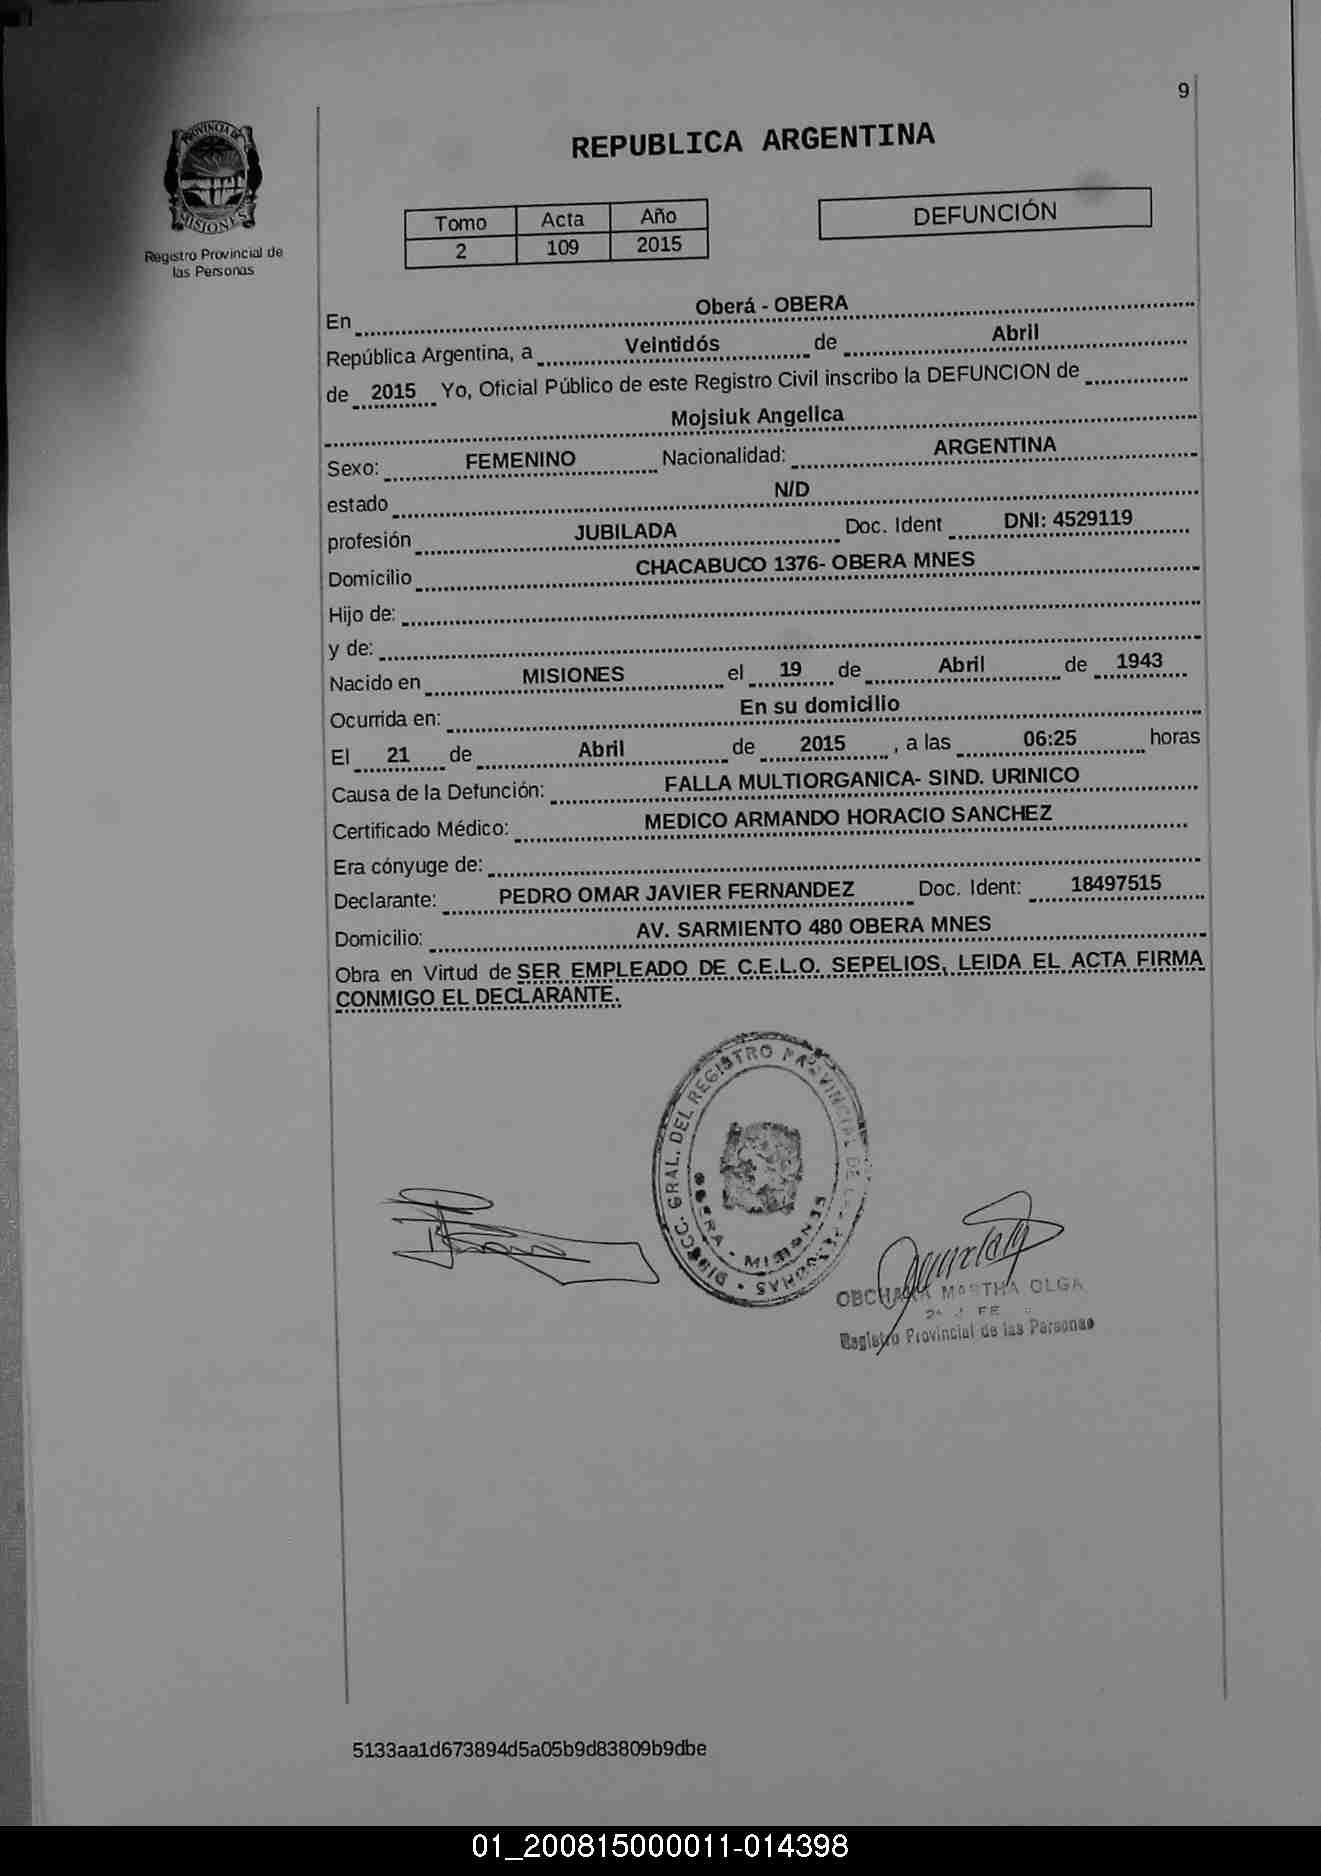 9
PROVINCIA DE
MISIONES
Registro Provincial de
las Personas
REPUBLICA ARGENTINA
Tomo Acta Año
2 109 2015
DEFUNCIÓN
En Oberá - OBERA
República Argentina, a Veintidós de Abril
de 2015 Yo, Oficial Público de este Registro Civil inscribo la DEFUNCION de
Mojsiuk Angelica
Sexo: FEMENINO Nacionalidad: ARGENTINA
estado N/D
profesión JUBILADA Doc. Ident DNI: 4529119
Domicilio CHACABUCO 1376- OBERA MNES
Hijo de:
y de:
Nacido en MISIONES el 19 de Abril de 1943
Ocurrida en: En su domicilio
El 21 de Abril de 2015 , a las 06:25 horas
Causa de la Defunción: FALLA MULTIORGANICA- SIND. URINICO
Certificado Médico: MEDICO ARMANDO HORACIO SANCHEZ
Era cónyuge de:
Declarante: PEDRO OMAR JAVIER FERNANDEZ Doc. Ident: 18497515
Domicilio: AV. SARMIENTO 480 OBERA MNES
Obra en Virtud de SER EMPLEADO DE C.E.L.O. SEPELIOS, LEIDA EL ACTA FIRMA
CONMIGO EL DECLARANTE.
DIRECC. GRAL. DEL REGISTRO PROVINCIAL DE LAS PERSONAS
OBERA - MISIONES
MARTHA OLGA
Registro Provincial de las Personas
5133aa1d673894d5a05b9d83809b9dbe
01_200815000011-014398